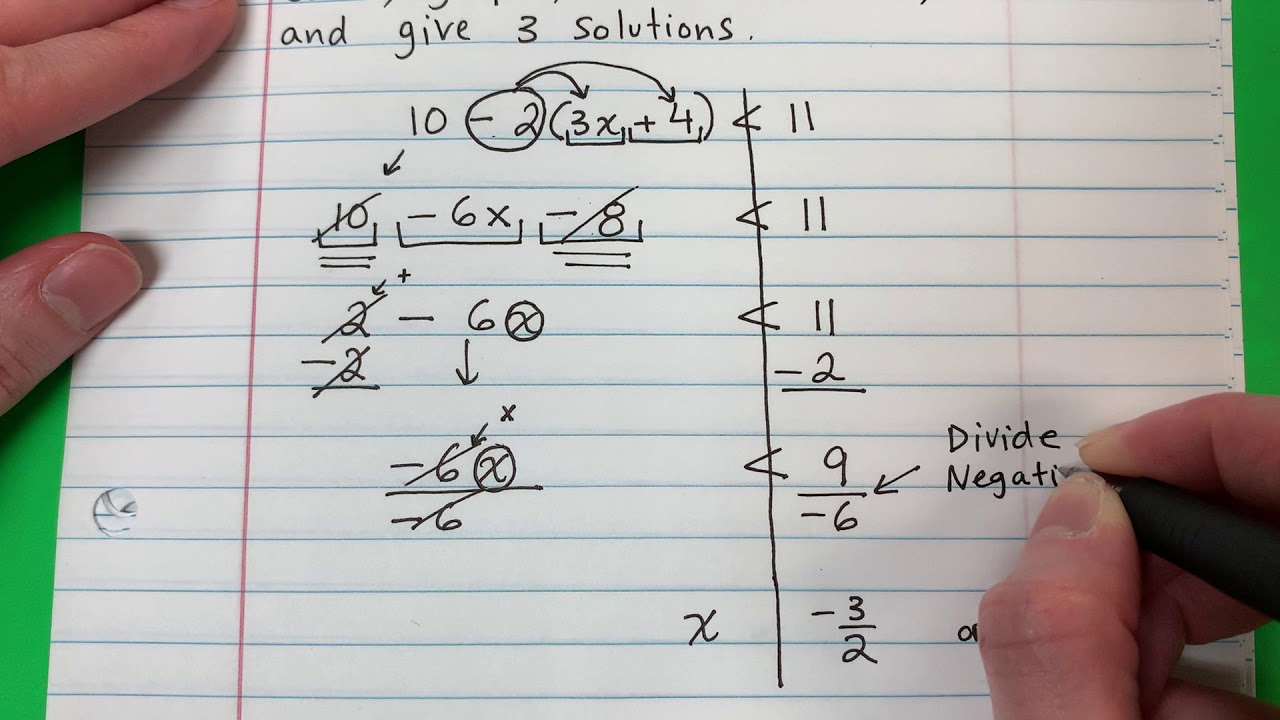 and give 3 solutions.
10 - 2(3x + 4) < 11
10 - 6x - 8 < 11
+
2 - 6x < 11
-2 -2
x
-6x < 9 Divide
-6 -6 Negati
x -3/2